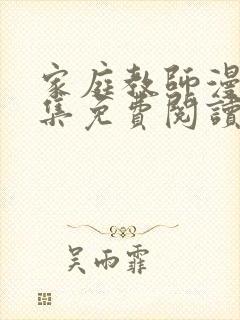 家庭教師漫
集免費閱讀
吴雨霏